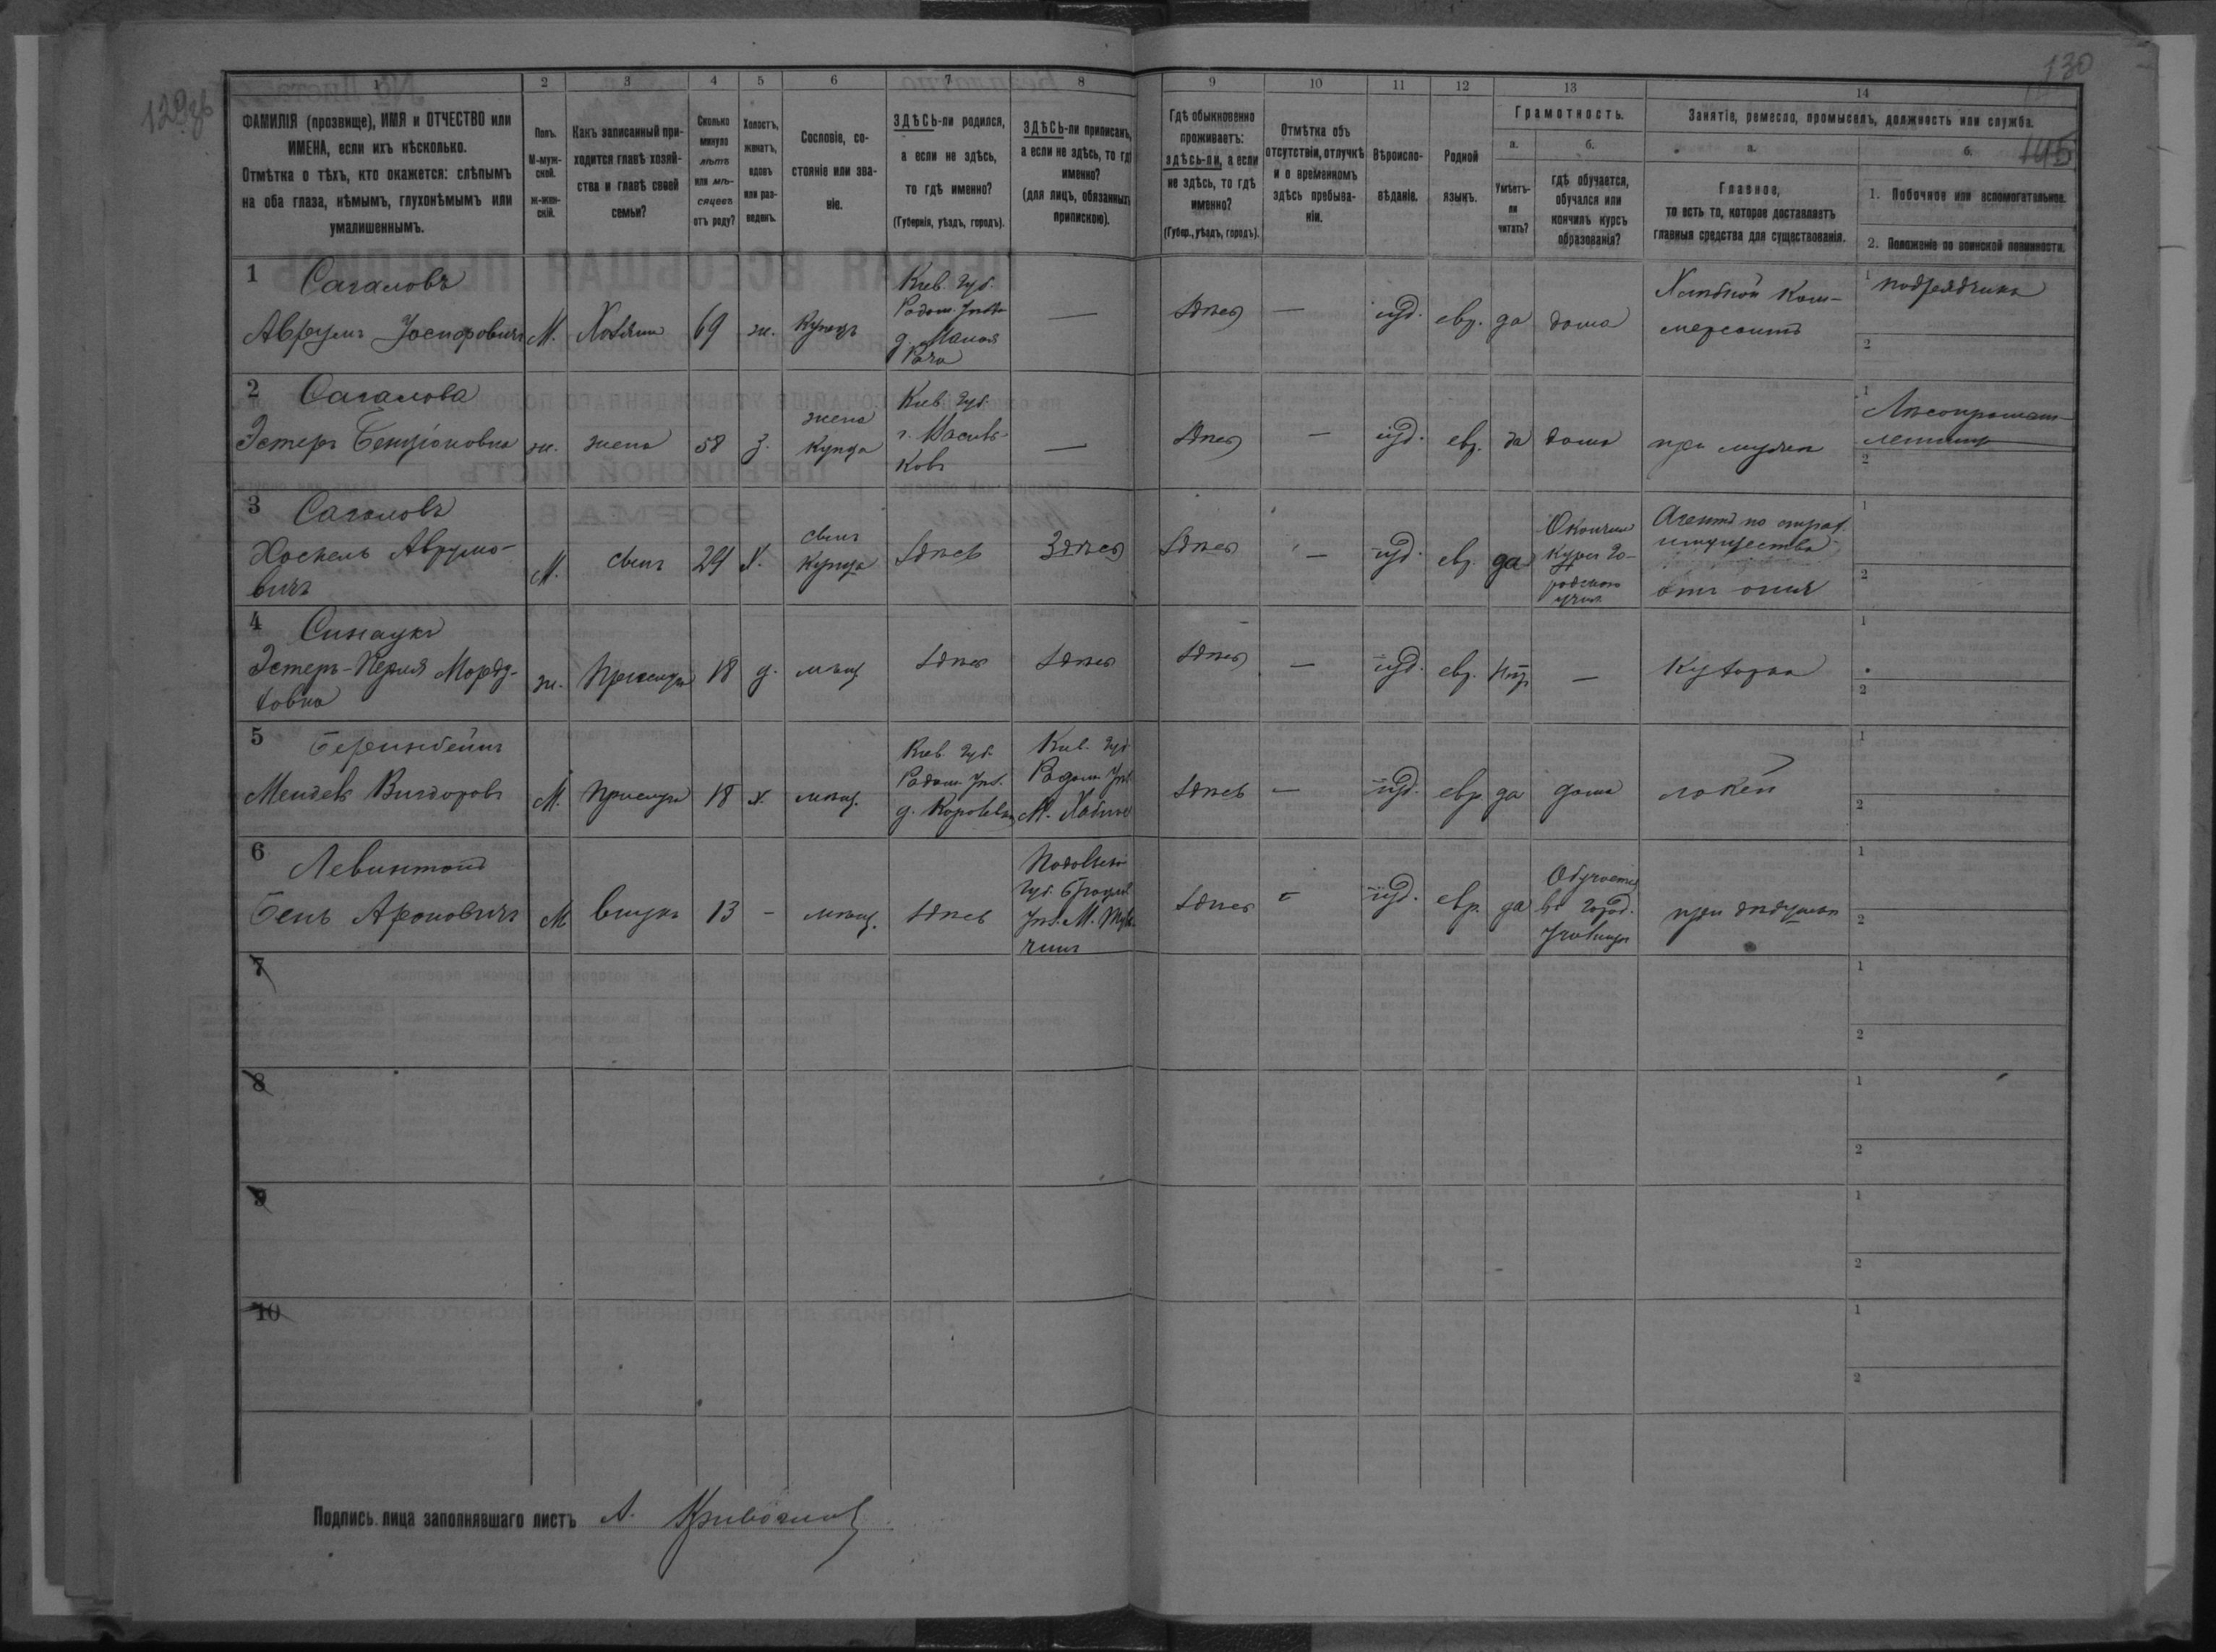 129об
130
145
1
2
3
4
5
6
7
8
9
10
11
12
13
14
ФАМИЛІЯ (прозвище), ИМЯ и ОТЧЕСТВО или
ИМЕНА, если ихъ нѣсколько.
Отмѣтка о тѣхъ, кто окажется: слѣпымъ
на оба глаза, нѣмымъ, глухонѣмымъ или
умалишеннымъ.
Полъ.
М-муж-
ской.
Ж-жен-
скій.
Какъ записанный при-
ходится главѣ хозяй-
ства и главѣ своей
семьи?
Сколько
минуло
лѣтъ
или мѣ-
сяцевъ
отъ роду?
Холостъ,
женатъ,
вдовъ
или раз-
веденъ.
Сословіе, со-
стояніе или зва-
ніе.
ЗДѢСЬ-ли родился,
а если не здѣсь,
то гдѣ именно?
(Губернія, уѣздъ, городъ).
ЗДѢСЬ-ли приписанъ,
а если не здѣсь, то гдѣ
именно?
(для лицъ, обязанныхъ
припискою).
Гдѣ обыкновенно
проживаетъ:
здѣсь-ли, а если
не здѣсь, то гдѣ
именно?
(Губер., уѣздъ, городъ).
Отмѣтка объ
отсутствіи, отлучкѣ
и о временномъ
здѣсь пребыва-
ніи.
Вѣроиспо-
вѣданіе.
Родной
языкъ.
Грамотность.
а.
Умѣетъ-
ли
читать?
б.
гдѣ обучается,
обучался или
кончилъ курсъ
образованія?
Занятіе, ремесло, промыселъ, должность или служба.
а.
Главное,
то есть то, которое доставляетъ
главныя средства для существованія.
б.
1. Побочное или вспомогательное.
2. Положеніе по воинской повинности.
1 Сагаловъ
Аврумъ Іосифовичъ М. Хозяинъ 69 ж. Купецъ
Кіев. губ.
Радом. уѣзда
д. Малая
Рача
— здѣсь — іуд. евр. да дома
Хлѣбной Ком-
мерсантъ
1 подрядчика
2
2 Сагалова
Эстеръ Бенціоновна ж. жена 58 з.
жена
Купца
Кіев. губ.
г. Василь-
ковъ
— здѣсь — іуд. евр. да дома при мужѣ
1 Лѣсопромыш-
ленникъ
2
3 Сагаловъ
Хаскель Аврумо-
вичъ
М. сынъ 24 х.
сынъ
Купца
здѣсь здѣсь здѣсь — іуд. евр. да
Окончилъ
курсъ го-
родского
учил.
Агентъ по страх.
имущества
отъ огня
1
2
4
Эстеръ-Перля
ж. Прислуга 18 д. мѣщ здѣсь здѣсь здѣсь — іуд. евр. нѣтъ — Кухарка
1
2
5
М. Прислуга 18 х. мѣщ.
Кіев. губ.
Радом. уѣз.
Кіев. губ
Радом. уѣз
М. Хабное
здѣсь — іуд. евр да дома лакей
1
2
6 Левинтонъ
Бень Ароновичъ М внукъ 13 - мѣщ. здѣсь
Подольской
губ. Брацлав.
уѣз. М. Туль-
чинъ
здѣсь - іуд. евр. да
Обучается
въ город.
училищѣ
при дѣдушкѣ
1
2
7
1
2
8
1
2
9
1
2
10
1
2
Подпись лица заполнявшаго листъ А.